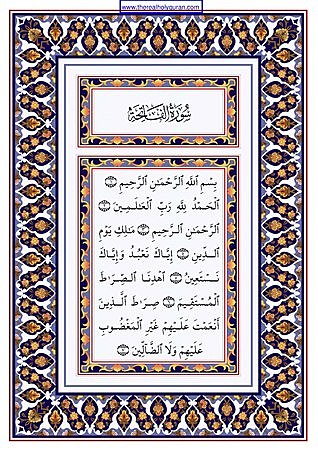 www.therealholyquran.com
سُورَةُ الْفَاتِحَةِ
بِسْمِ اللَّهِ الرَّحْمَٰنِ الرَّحِيمِ ۝١
الْحَمْدُ لِلَّهِ رَبِّ الْعَالَمِينَ ۝٢
الرَّحْمَٰنِ الرَّحِيمِ ۝٣ مَالِكِ يَوْمِ
الدِّينِ ۝٤ إِيَّاكَ نَعْبُدُ وَإِيَّاكَ
نَسْتَعِينُ ۝٥ اهْدِنَا الصِّرَاطَ
الْمُسْتَقِيمَ ۝٦ صِرَاطَ الَّذِينَ
أَنْعَمْتَ عَلَيْهِمْ غَيْرِ الْمَغْضُوبِ
عَلَيْهِمْ وَلَا الضَّالِّينَ ۝٧